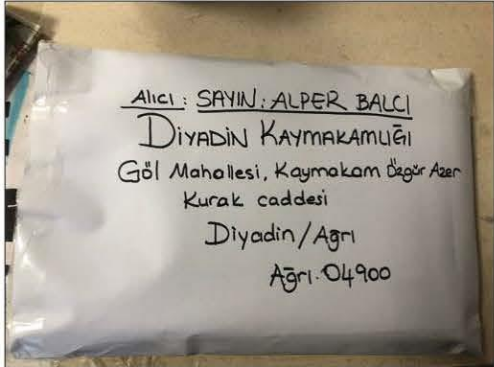 Alıcı : SAYIN : ALPER BALCI
DİYADİN KAYMAKAMLIĞI
Göl Mahallesi, Kaymakam Özgür Azer
Kurak caddesi
Diyadin/Ağrı
Ağrı. 04900